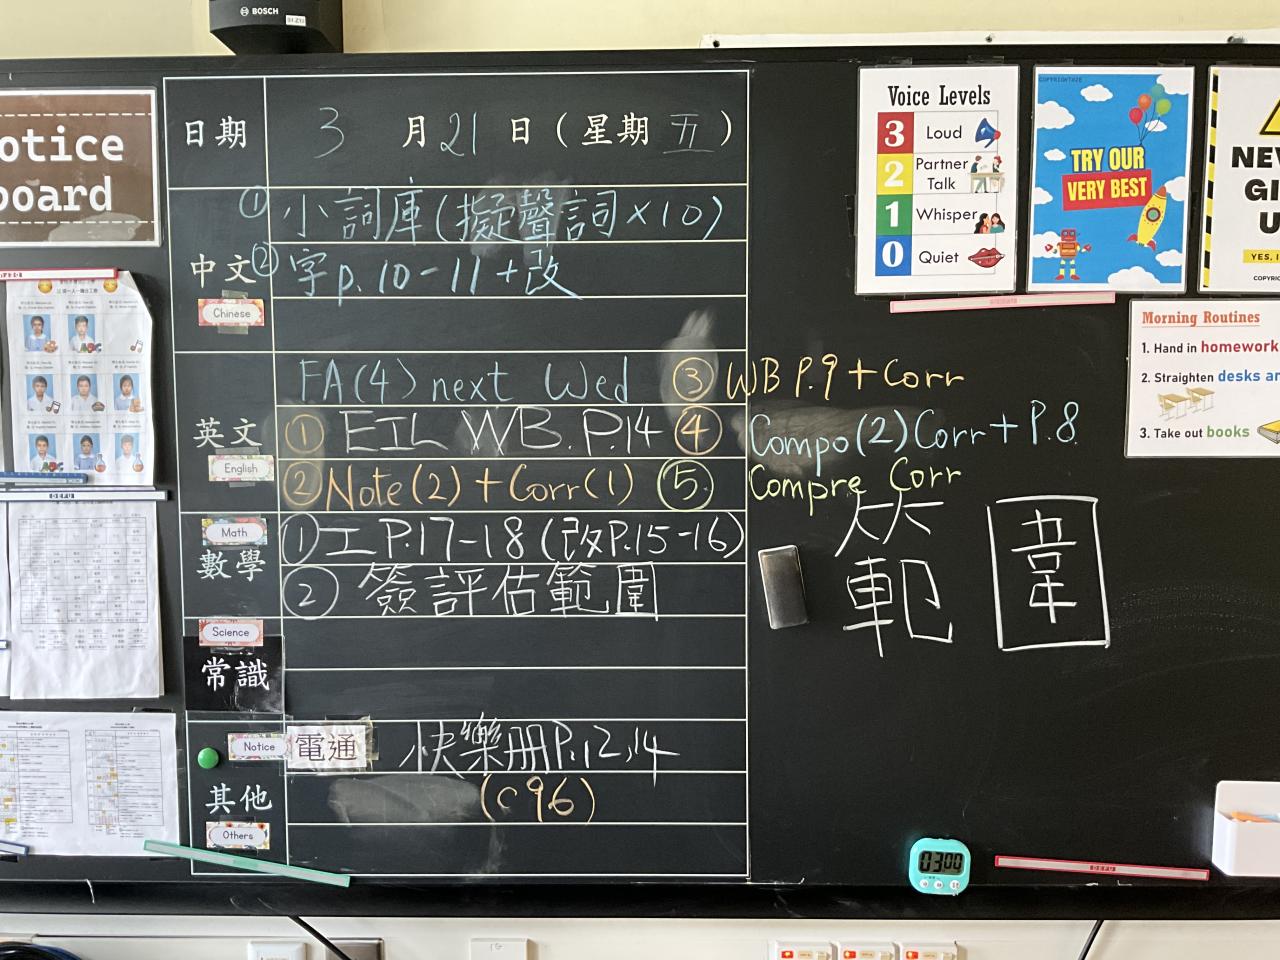 BOSCH
otice
board
日期 3 月 21 日 (星期 五)
中文
Chinese
① 小詞庫(擬聲詞×10)
② 字p.10-11+改
英文
English
FA(4) next Wed
① EIL WB. P.14
② Note(2) + Corr(1)
③ WB P.9 + Corr
④ Compo(2) Corr + P.8
⑤ Compre Corr
Math
數學
① 工P.17-18(改P.15-16)
② 簽評估範圍
範 圍
Science
常識
Notice
電通 快樂册P.12,14
其他
Others
(c96)
Voice Levels
3 Loud
2 Partner Talk
1 Whisper
0 Quiet
TRY OUR
VERY BEST
NEV
GI
U
YES, I
Morning Routines
1. Hand in homework
2. Straighten desks an
3. Take out books
DEFU
DEFU
03:00